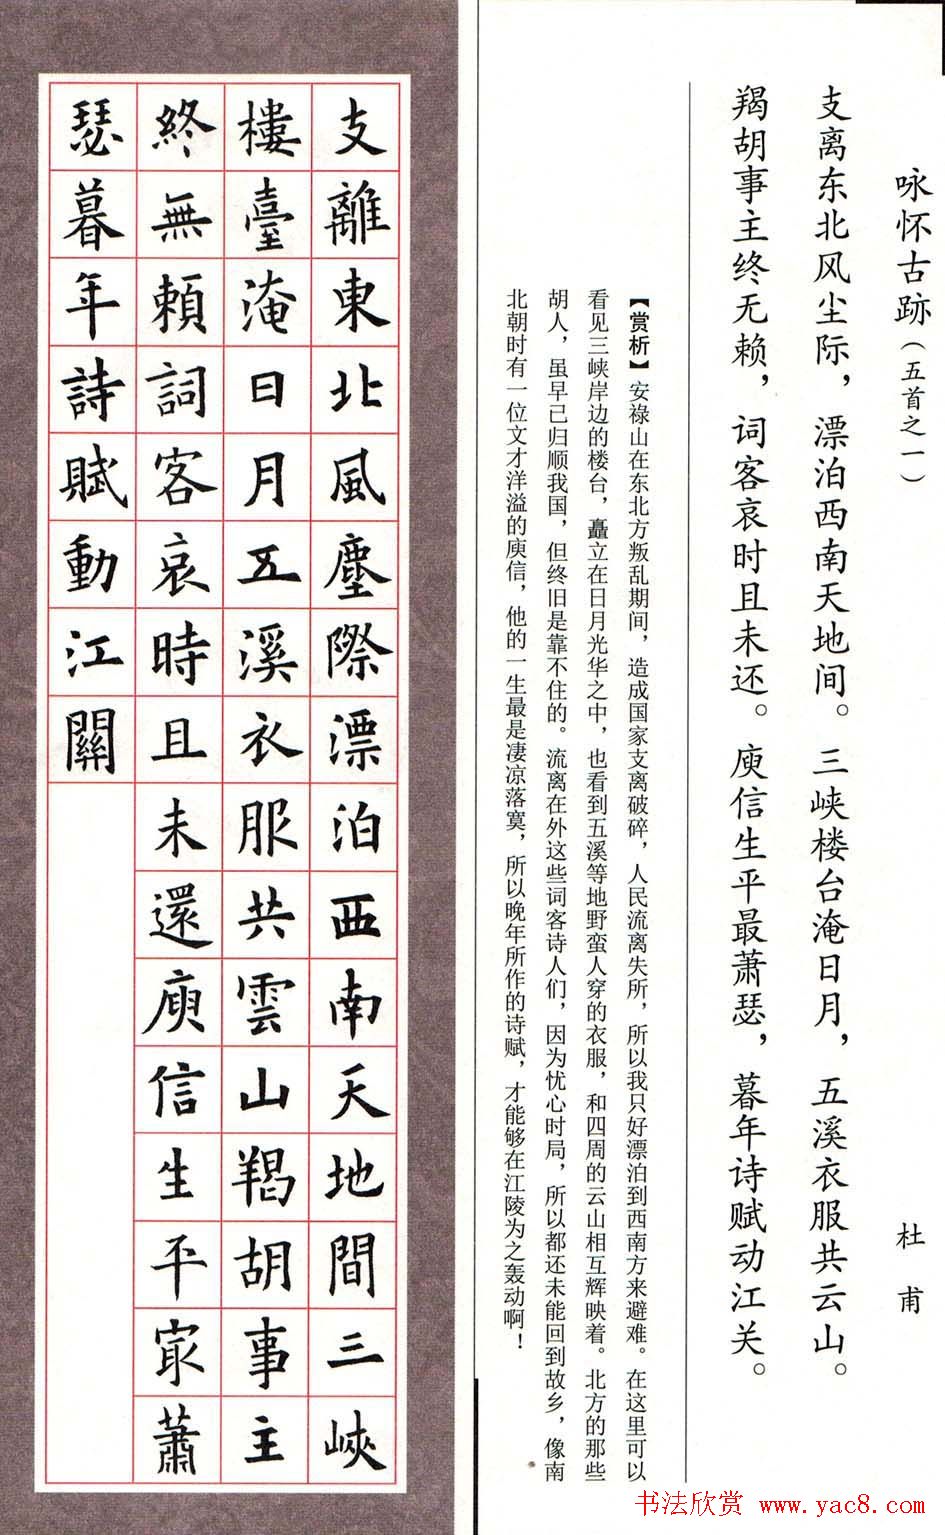 咏怀古跡（五首之一）
杜甫
支离东北风尘际，漂泊西南天地间。三峡楼台淹日月，五溪衣服共云山。
羯胡事主终无赖，词客哀时且未还。庾信生平最萧瑟，暮年诗赋动江关。
【赏析】安禄山在东北方叛乱期间，造成国家支离破碎，人民流离失所，所以我只好漂泊到西南方来避难。在这里可以
看见三峡岸边的楼台，矗立在日月光华之中，也看到五溪等地野蛮人穿的衣服，和四周的云山相互辉映着。北方的那些
胡人，虽早已归顺我国，但终旧是靠不住的。流离在外这些词客诗人们，因为忧心时局，所以都还未能回到故乡，像南
北朝时有一位文才洋溢的庾信，他的一生最是凄凉落寞，所以晚年所作的诗赋，才能够在江陵为之轰动啊！
支離東北風塵際漂泊西南天地間三峽
樓臺淹日月五溪衣服共雲山羯胡事主
終無賴詞客哀時且未還庾信生平冣蕭
瑟暮年詩賦動江關
书法欣赏 www.yac8.com